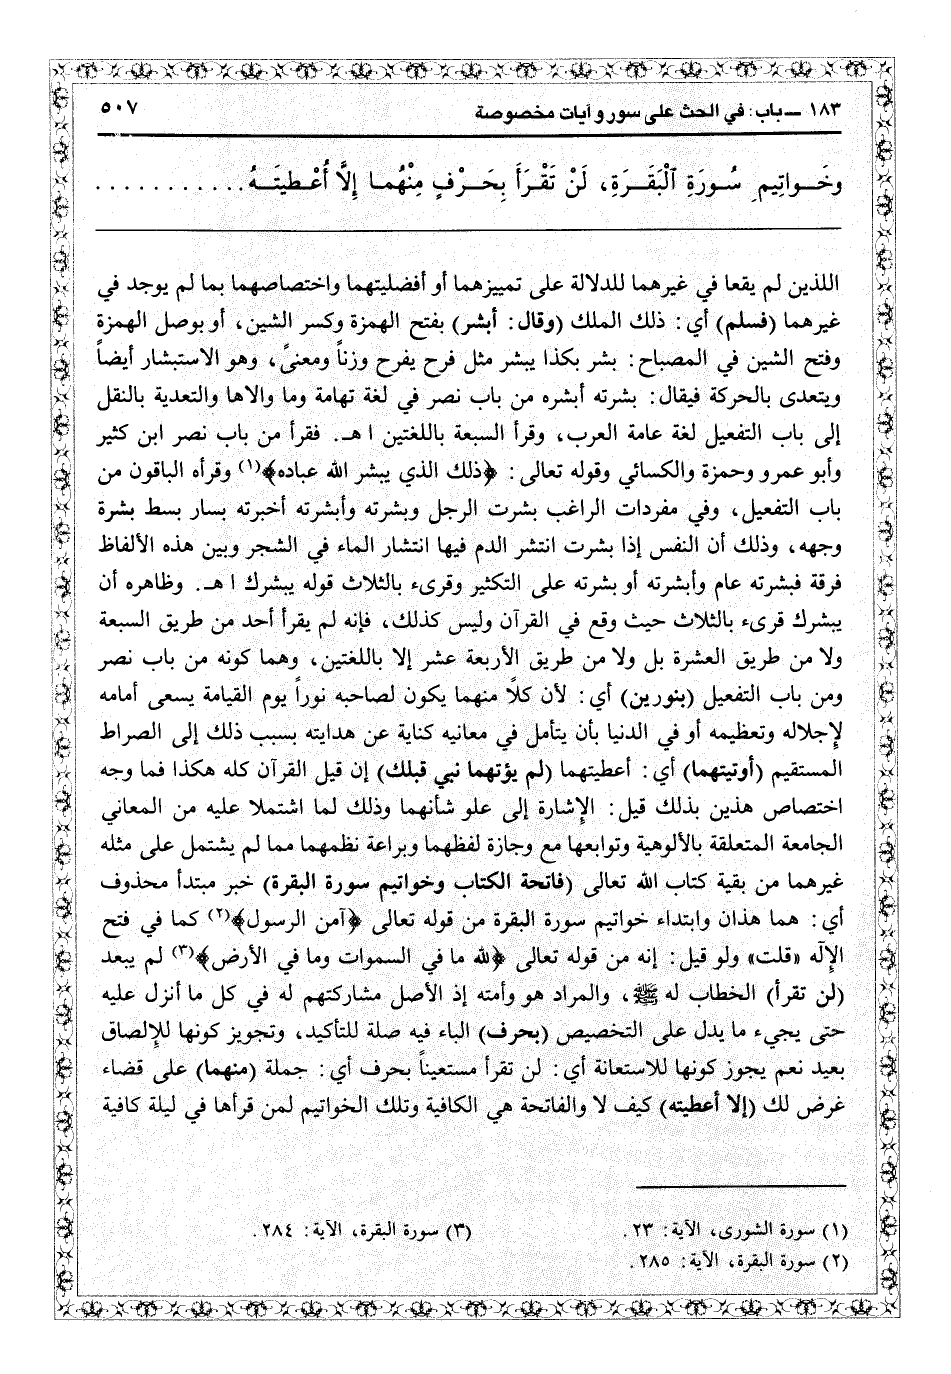 ١٨٣ ــ باب: في الحث على سور وآيات مخصوصة
٥٠٧
وخَـواتِيمِ سُورَةِ ٱلْبَقَـرَةِ، لَنْ تَقْـرَأَ بِحَـرْفٍ مِنْهُمـا إلَّا أُعْـطِيتَـهُ . . . . . . . . . . .
اللذين لم يقعا في غيرهما للدلالة على تمييزهما أو أفضليتهما واختصاصهما بما لم يوجد في
غيرهما (فسلم) أي: ذلك الملك (وقال: أبشر) بفتح الهمزة وكسر الشين، أو بوصل الهمزة
وفتح الشين في المصباح: بشر بكذا يبشر مثل فرح يفرح وزناً ومعنىً، وهو الاستبشار أيضاً
ويتعدى بالحركة فيقال: بشرته أبشره من باب نصر في لغة تهامة وما والاها والتعدية بالنقل
إلى باب التفعيل لغة عامة العرب، وقرأ السبعة باللغتين ا هـ. فقرأ من باب نصر ابن كثير
وأبو عمرو وحمزة والكسائي وقوله تعالى: ﴿ذلك الذي يبشر الله عباده﴾(١) وقرأه الباقون من
باب التفعيل، وفي مفردات الراغب بشرت الرجل وبشرته وأبشرته أخبرته بسار بسط بشرة
وجهه، وذلك أن النفس إذا بشرت انتشر الدم فيها انتشار الماء في الشجر وبين هذه الألفاظ
فرقة فبشرته عام وأبشرته أو بشرته على التكثير وقرىء بالثلاث قوله يبشرك ا هـ. وظاهره أن
يبشرك قرىء بالثلاث حيث وقع في القرآن وليس كذلك، فإنه لم يقرأ أحد من طريق السبعة
ولا من طريق العشرة بل ولا من طريق الأربعة عشر إلا باللغتين، وهما كونه من باب نصر
ومن باب التفعيل (بنورين) أي: لأن كلاً منهما يكون لصاحبه نوراً يوم القيامة يسعى أمامه
لإِجلاله وتعظيمه أو في الدنيا بأن يتأمل في معانيه كناية عن هدايته بسبب ذلك إلى الصراط
المستقيم (أوتيتهما) أي: أعطيتهما (لم يؤتهما نبي قبلك) إن قيل القرآن كله هكذا فما وجه
اختصاص هذين بذلك قيل: الإِشارة إلى علو شأنهما وذلك لما اشتملا عليه من المعاني
الجامعة المتعلقة بالألوهية وتوابعها مع وجازة لفظهما وبراعة نظمهما مما لم يشتمل على مثله
غيرهما من بقية كتاب الله تعالى (فاتحة الكتاب وخواتيم سورة البقرة) خبر مبتدأ محذوف
أي: هما هذان وابتداء خواتيم سورة البقرة من قوله تعالى ﴿آمن الرسول﴾(٢) كما في فتح
الإِلٰه «قلت» ولو قيل: إنه من قوله تعالى ﴿لله ما في السموات وما في الأرض﴾(٣) لم يبعد
(لن تقرأ) الخطاب له ﷺ، والمراد هو وأمته إذ الأصل مشاركتهم له في كل ما أنزل عليه
حتى يجيء ما يدل على التخصيص (بحرف) الباء فيه صلة للتأكيد، وتجويز كونها للإِلصاق
بعيد نعم يجوز كونها للاستعانة أي: لن تقرأ مستعيناً بحرف أي: جملة (منهما) على قضاء
غرض لك (إلا أعطيته) كيف لا والفاتحة هي الكافية وتلك الخواتيم لمن قرأها في ليلة كافية
(١) سورة الشورى، الآية: ٢٣.
(٣) سورة البقرة، الآية: ٢٨٤.
(٢) سورة البقرة، الآية: ٢٨٥.